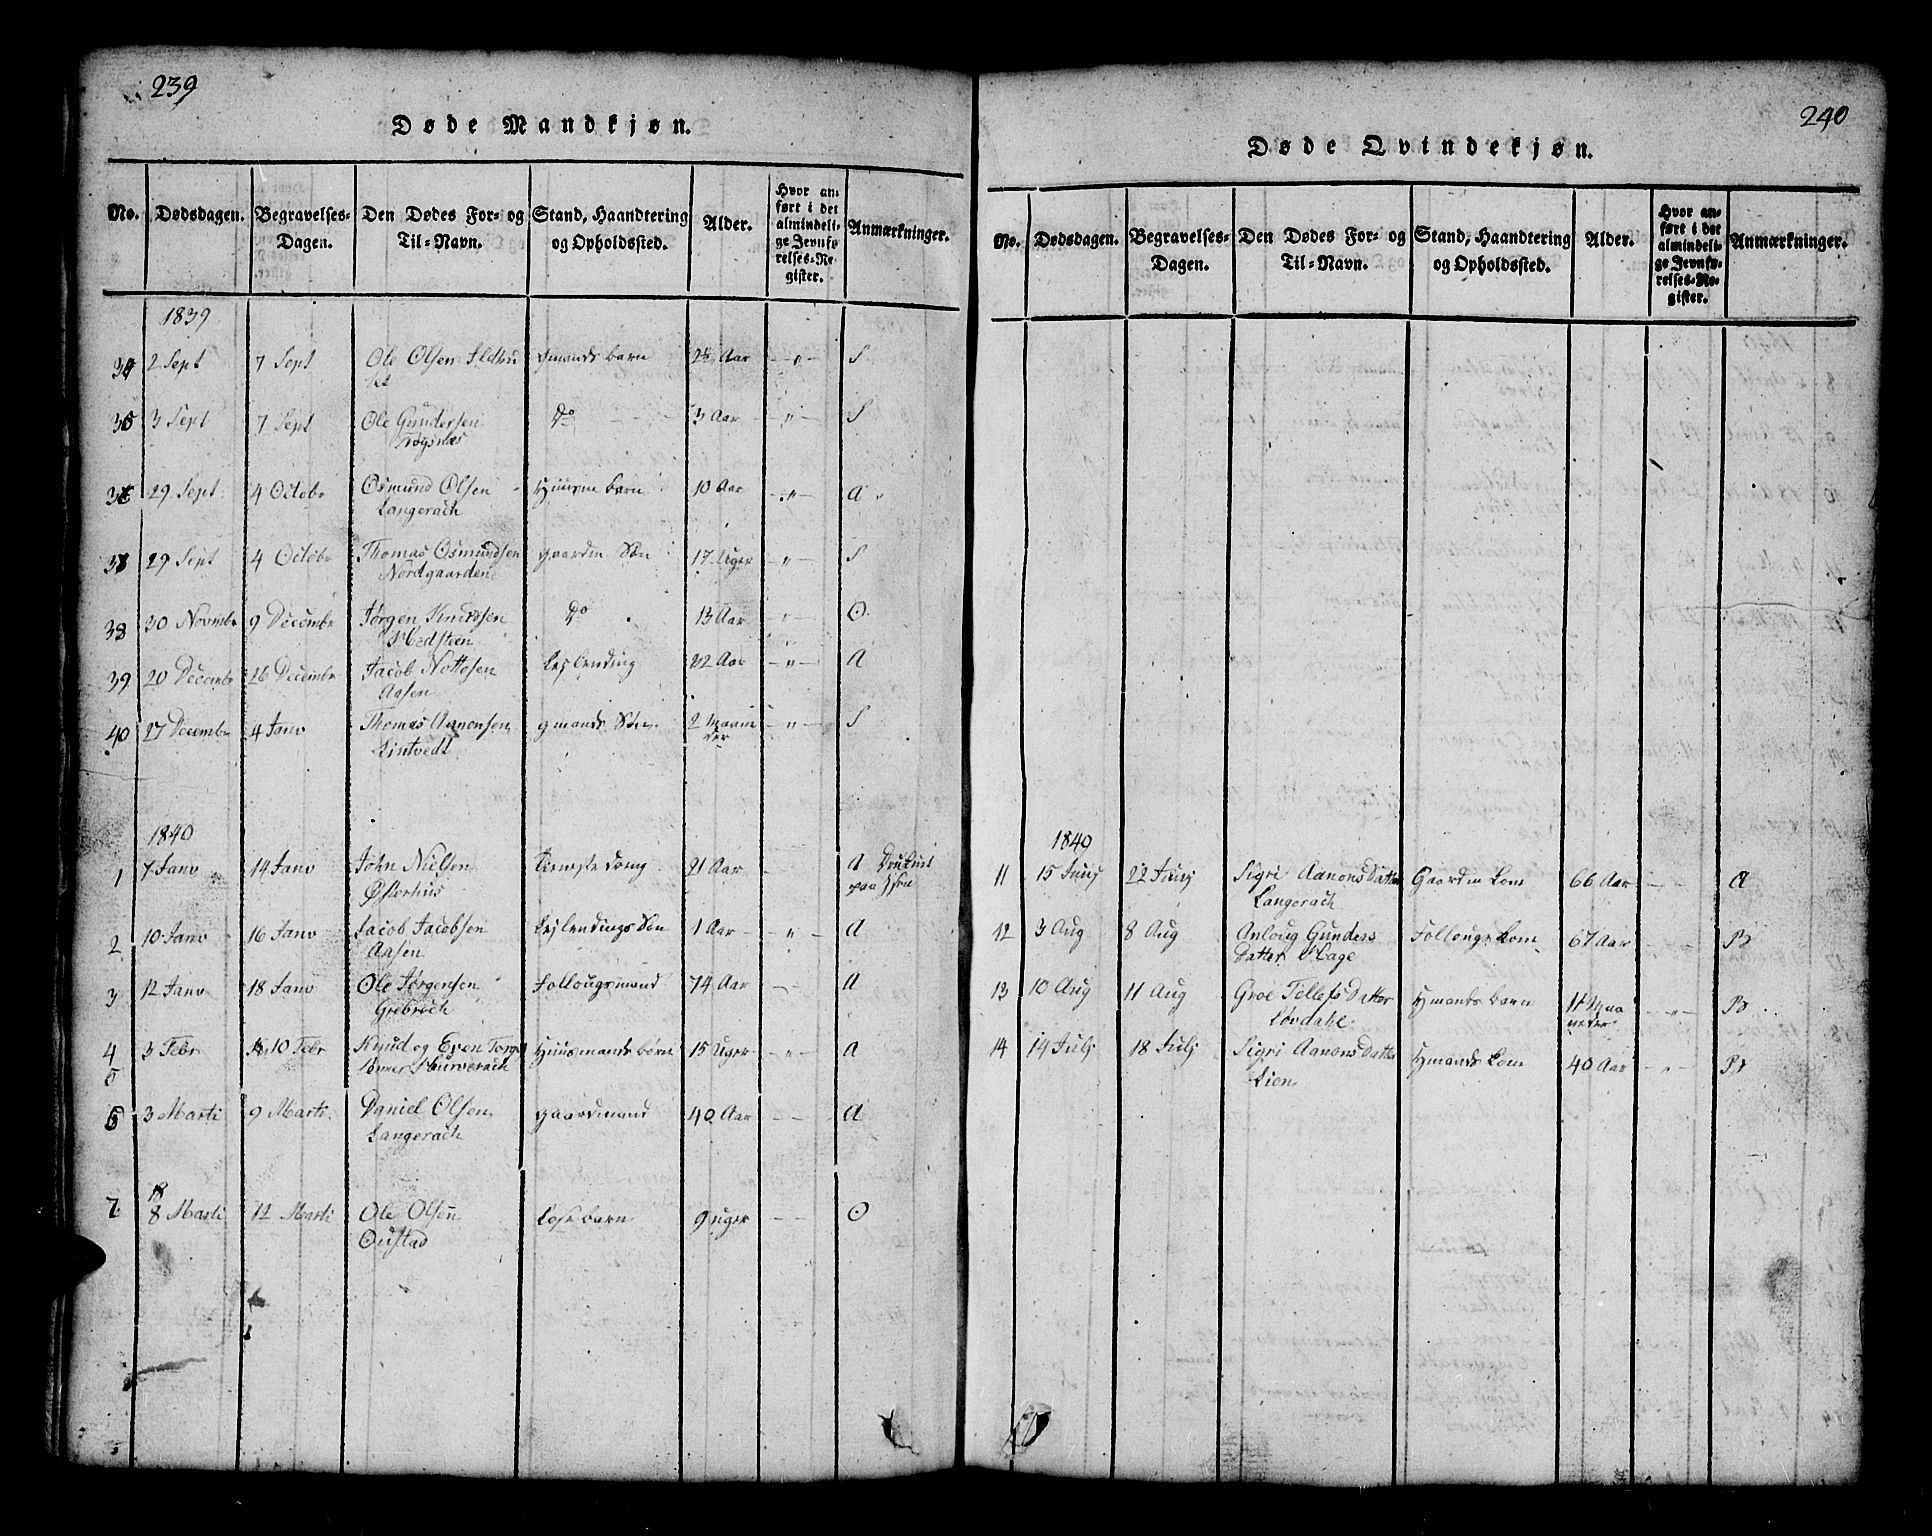 239
Døde Mandkjøn.
No. Dødsdagen. Begravelses-Dagen. Den Dødes For- og Til-Navn. Stand, Haandtering og Opholdssted. Alder. Hvor anført i det almindelige Jevnførelses-Register. Anmærkninger.
1839
34 2 Sept 7 Sept Ole Olsen gmands barn 2½ Aar - " - S
35 3 Sept 7 Sept Ole Gundersen Do 3 Aar - " - S
Trøgsnæs
36 29 Sept 4 Octobr Osmund Olsen barn 10 Aar - " - A
Langerach
37 29 Sept 4 Octobr Thomas Osmundsen gaardm Søn 17 Uger - " - S
Nordgaarden
38 30 Novmbr 9 Decembr Jørgen Knudsen Do 13 Aar - " - O
Mødsteen
39 20 Decembr 26 Decembr Jacob Nottosen Lejlending 22 Aar - " - A
Aasen
40 27 Decembr 4 Janv Thomas Aanonsen gmands Søn 2 Maane - " - S
Lintvedt der
1840
1 7 Janv 14 Janv John Nielsen Tieneste dreng 21 Aar - A Druknet
Østerhus paa Søen
2 10 Janv 16 Janv Jacob Jacobsen Lejlendings Søn 1 Aar - " - A
Aasen
3 12 Janv 18 Janv Ole Jørgensen Follougsmand 74 Aar - A
Grebroch
4 3 Febr 10 Febr Knud og Even Torge Huusmands børn 15 Uger - " - A
5 Skurverach
6 3 Marti 9 Marti Daniel Olsen gaardmand 40 Aar - - A
Langerach
18
7 8 Marti 12 Marti Ole Olsen Løse barn 9 uger - - O
Oustad
240
Døde Qvindekjøn.
No. Dødsdagen. Begravelses-Dagen. Den Dødes For- og Til-Navn. Stand, Haandtering og Opholdssted. Alder. Hvor anført i det almindelige Jevnførelses-Register. Anmærkninger.
1840
11 15 Junj 22 Junj Sigri Aanons Datter Gaardm kone 66 Aar - - A
Langerach
12 3 Aug 8 Aug Anloug Gunders Follougs kone 67 Aar - - B
Datter Hage
13 10 Aug 11 Aug Groe Tellefs Datter Hmands barn 11 Maa - " - B
Løvdahl neder
14 14 Julj 18 Julj Sigri Aanons Datter Hmands kone 40 Aar - " - B
Lien